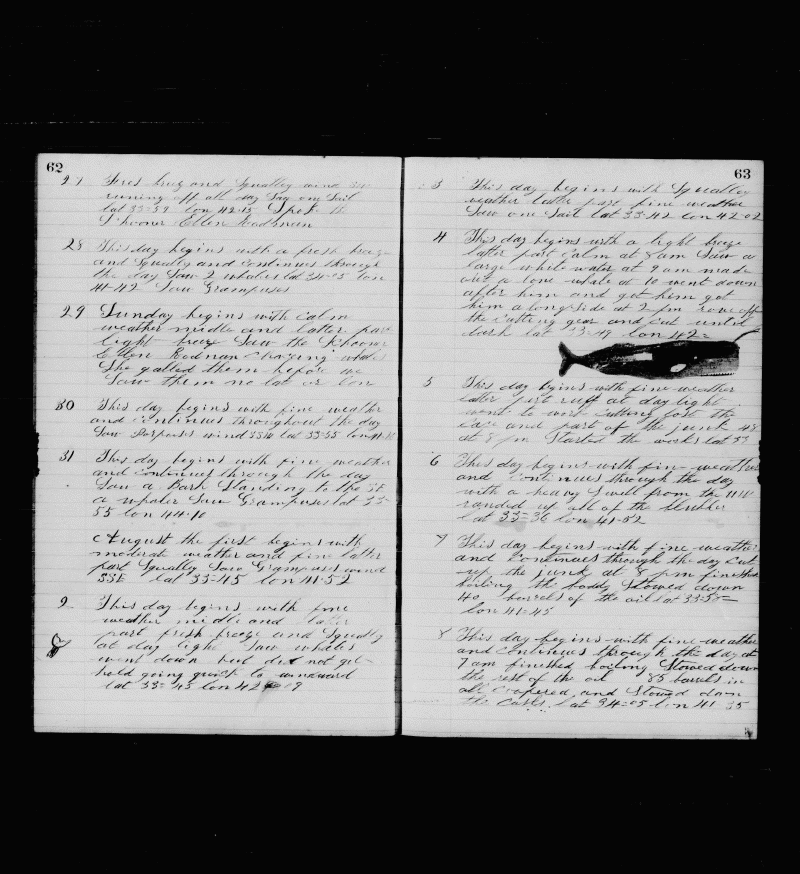 62
27 breeze and Squally wind
runing off all day Saw one Sail
lat 33=39 lon 42=15 Spok the
Schooner Ellen Rodman
28 This day begins with a fresh breeze
and Squally and continues through
the day Saw 2 whalers lat 34=05 lon
41=42 Saw Grampuses
29 Sunday begins with calm
weather midle and latter part
light breeze Saw the Schooner
Ellen Rodman chasing whales
She galled them before we
Saw them no lat or lon
30 This day begins with fine weather
and continues throughout the day
Saw Porpoises wind SSW lat 33=55 lon 41=
31 This day begins with fine weather
and continues through the day
Saw a Bark Standing to the SE
a whaler Saw Grampuses lat 33=
55 lon 44=10
August the first begins with
moderate weather and fine latter
part Squally Saw Grampuses wind
SSE lat 33=45 lon 41=52
2 This day begins with fine
weather midle and latter
part fresh breeze and Squally
at day light Saw whales
went down but did not get
hold going quick to windward
lat 33=45 lon 42= 09
63
3 This day begins with Squalley
weather latter part fine weather
Saw one Sail lat 33=42 lon 42=02
4 This day begins with a light breeze
latter part calm at 8 am Saw a
large white water at 9 am made
out a lone whale at 10 went down
after him and got him got
him a longside at 2 pm rove off
the cutting gear and cut until
dark lat 33=49 lon 42=
5 This day begins with fine weather
latter part ruff at day light
went to work cutting lost the
case and part of the junk
at 8 pm Started the works lat 33
6 This day begins with fine weather
and continues through the day
with a heavy Swell from the
all of the blubber
lat 33=36 lon 41=52
7 This day begins with fine weather
and continues through the day cut
up the junk at 8 pm finished
boiling the body Stowed down
40 barrels of the oil lat 33=55=
lon 41=45
8 This day begins with fine weather
and continues through the day at
7 am finished boiling Stowed down
the rest of the oil 85 barrels in
all coopered and Stowed down
the casks lat 34=05 lon 41=35